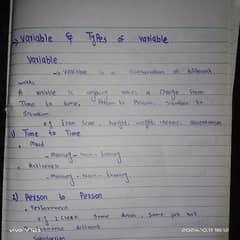 → Variable & Types of Variable
Variable
→ Variable is a combination of different
words
A variable is anything which a change from
Time to time, Person to Person, Situation to
Situation
e.g Exam score, height, weight
1) Time to Time
• Mood
- Morning - Noon - Evening
-
- Morning - Noon - Evening
2) Person to Person
• Performance
e.g 2 same same job but
different
Satisfaction
vivo Y15s
2024.10.11